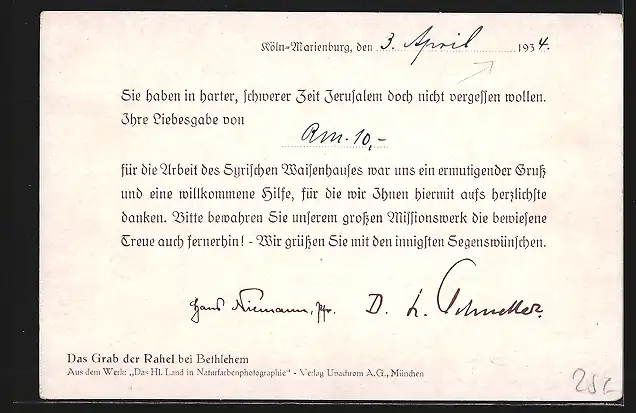 Köln-Marienburg, den 3. April 1934.
Sie haben in harter, schwerer Zeit Jerusalem doch nicht vergessen wollen.
Ihre Liebesgabe von
Rm. 10,-
für die Arbeit des Syrischen Waisenhauses war uns ein ermutigender Gruß
und eine willkommene Hilfe, für die wir Ihnen hiermit aufs herzlichste
danken. Bitte bewahren Sie unserem großen Missionswerk die bewiesene
Treue auch fernerhin! - Wir grüßen Sie mit den innigsten Segenswünschen.
Hans Niemann, Pfr. D. L. Schneller.
Das Grab der Rahel bei Bethlehem
Aus dem Werk: „Das Hl. Land in Naturfarbenphotographie" - Verlag Uvachrom A.G., München